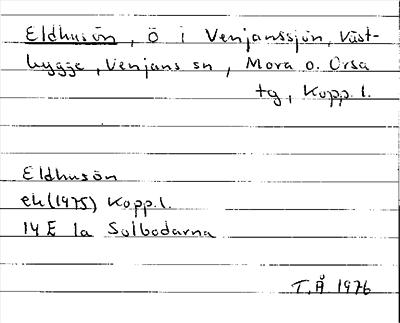 Eldhusön, ö i Venjanssjön, Väst-
bygge, Venjans sn, Mora o. Orsa
tg, Kopp. l.
Eldhusön
ek (1975) Kopp. l.
14 E 1a Solbodarna
T.Å 1976